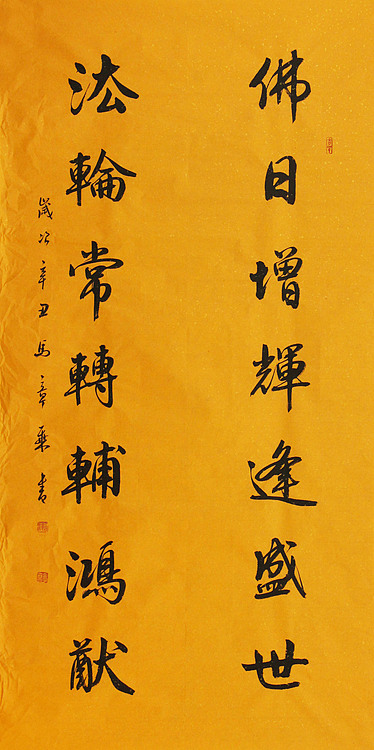 佛日增輝逢盛世
法輪常轉輔鴻猷
歲次辛丑馬章乘書